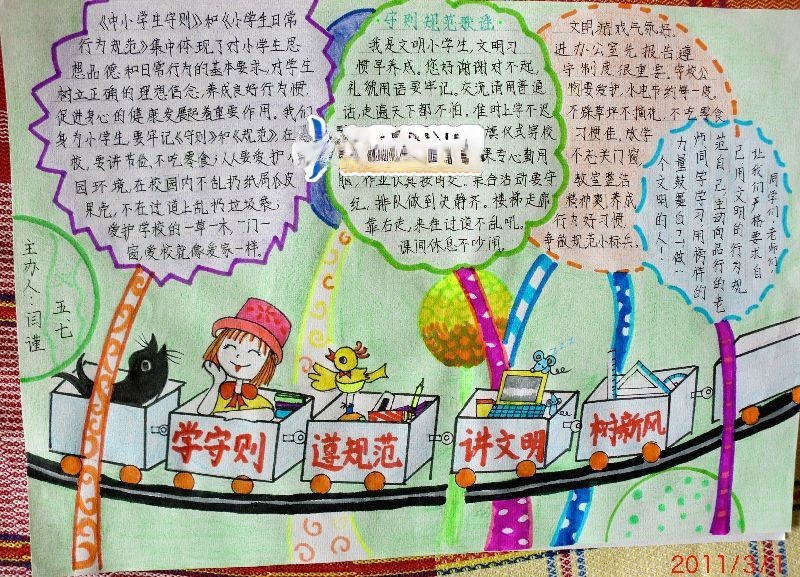 《中小学生守则》和《小学生日常
行为规范》集中体现了对小学生思
想品德和日常行为的基本要求，对学生
树立正确的理想信念，养成良好行为惯，
促进身心的健康发展起着重要作用。我们
身为小学生，要牢记《守则》和《规范》在
校，要讲节俭，不吃零食；人人要爱护
园环境，在校园内不乱扔纸屑
果壳，不在过道上乱扔垃圾；
爱护学校的一草一木，一门一
窗，爱校就像爱家一样。
守则规范歌谣
我是文明小学生，文明习
惯早养成。您好谢谢对不起，
礼貌用语要牢记。交流请用普通
话，走遍天下都不怕，准时上学不迟
仪式穿校
专心勤用
眼，作业认真按时交。集合活动要守
纪，排队做到快静齐。楼梯走廊
靠右走，来在过道不乱吼。
课间休息不吵闹，
文明游戏气氛好。
进办公室先报告，遵
守制度很重要。学校公
物要爱护，水电节约每一度。
不踩草坪不摘花，不吃零食
习惯佳，放学
不忘关门窗，
教室整洁
精神爽，养成
行为好习惯，
争做规范小标兵。
同学们，老师们，
让我们严格要求自
己，用文明的行为规
范自己，主动向品行的老
师同学学习，用榜样的
力量鼓舞自己，做一
个文明的人！
主办人：闫谨
五、七
学守则
遵规范
讲文明
树新风
2011/3/1